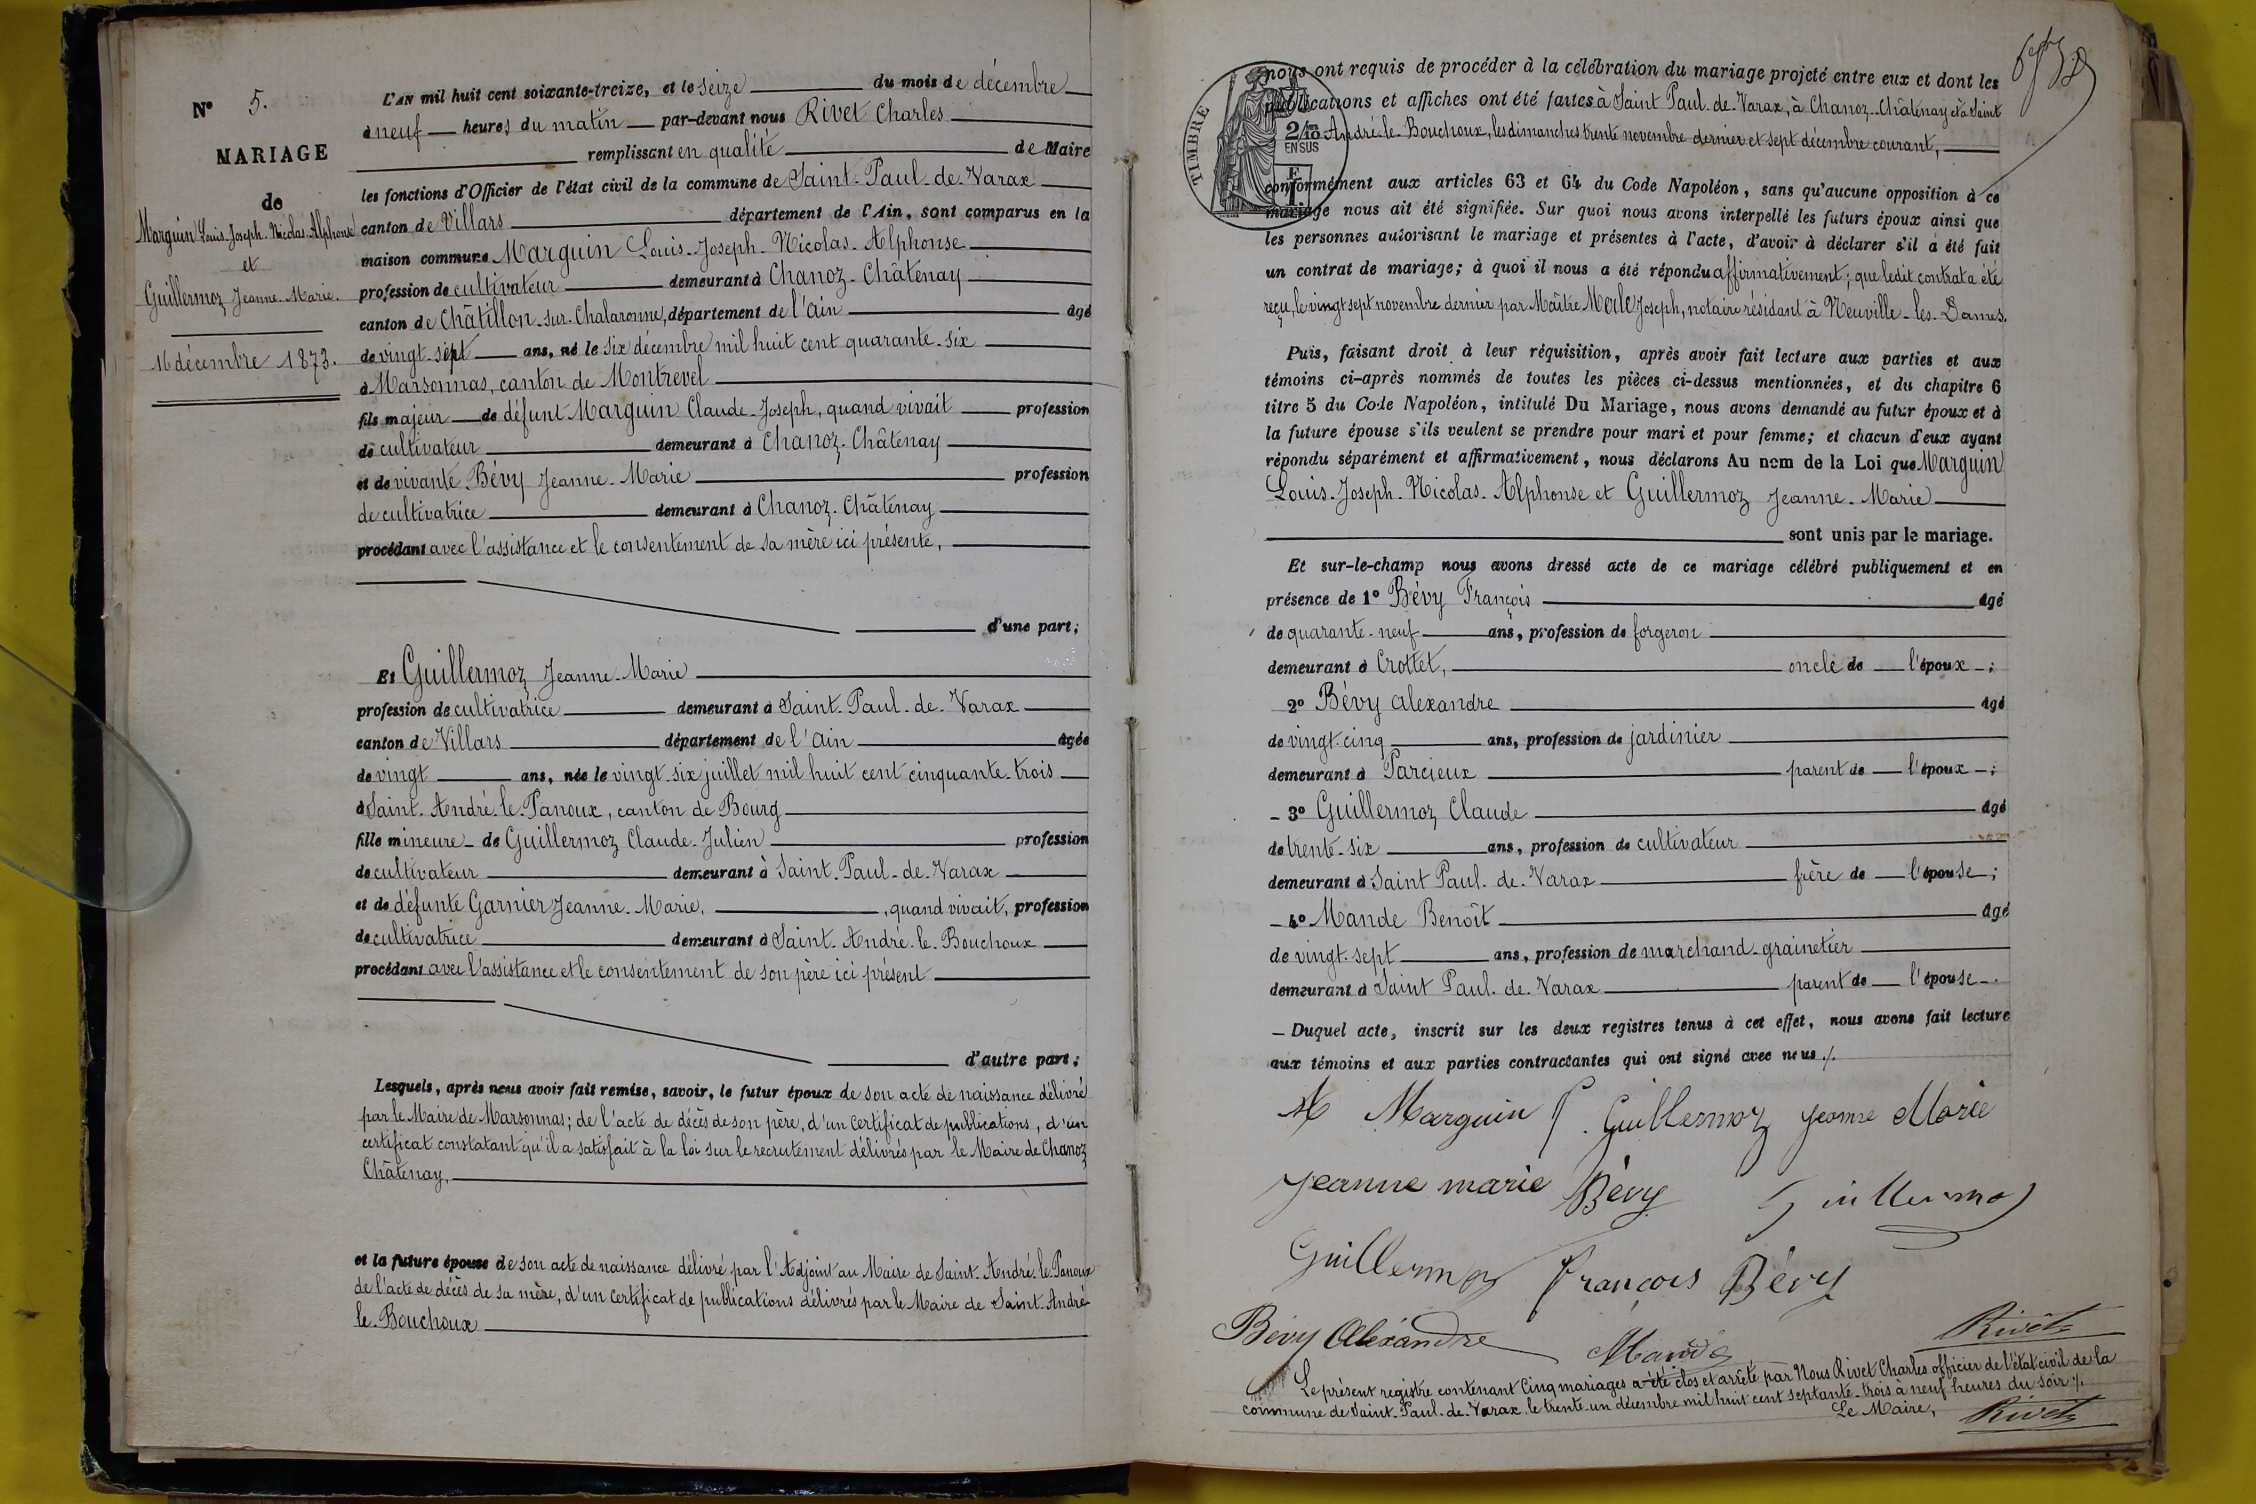 Nº 5.
MARIAGE
de
Marguin Louis-Joseph-Nicolas-Alphonse
et
Guillermoz Jeanne-Marie.
16 décembre 1873.
L'AN mil huit cent soixante-treize, et le seize du mois de décembre
à neuf heures du matin par-devant nous Rivet Charles
remplissant en qualité de Maire
les fonctions d'Officier de l'état civil de la commune de Saint-Paul-de-Varax
canton de Villars département de l'Ain, sont comparus en la
maison commune Marguin Louis-Joseph-Nicolas-Alphonse
profession de cultivateur demeurant à Chanoz-Châtenay
canton de Châtillon-sur-Chalaronne, département de l'ain âgé
de vingt-sept ans, né le six décembre mil huit cent quarante-six
à Marsonnas, canton de Montrevel
fils majeur de défunt Marguin Claude-Joseph, quand vivait profession
de cultivateur demeurant à Chanoz-Châtenay
et de vivante Bévy Jeanne-Marie profession
de cultivatrice demeurant à Chanoz-Châtenay
procédant avec l'assistance et le consentement de sa mère ici présente,
d'une part;
Et Guillermoz Jeanne-Marie
profession de cultivatrice demeurant à Saint-Paul-de-Varax
canton de Villars département de l'ain âgée
de vingt ans, née le vingt-six juillet mil huit cent cinquante-trois
à Saint-André-le-Panoux, canton de Bourg
fille mineure de Guillermoz Claude-Julien profession
de cultivateur demeurant à Saint-Paul-de-Varax
et de défunte Garnier Jeanne-Marie, , quand vivait, profession
de cultivatrice demeurant à Saint-André-le-Bouchoux
procédant avec l'assistance et le consentement de son père ici présent
d'autre part;
Lesquels, après nous avoir fait remise, savoir, le futur époux de son acte de naissance délivré
par le Maire de Marsonnas; de l'acte de décès de son père, d'un certificat de publications, d'un
certificat constatant qu'il a satisfait à la loi sur le recrutement délivrés par le Maire de Chanoz
Châtenay,
et la future épouse de son acte de naissance délivré par l'Adjoint au Maire de Saint-André-le-Panoux
de l'acte de décès de sa mère, d'un certificat de publications délivrés par le Maire de Saint-André-
le-Bouchoux
TIMBRE
2/10 EN SUS
nous ont requis de procéder à la célébration du mariage projeté entre eux et dont les
publications et affiches ont été faites à Saint Paul-de-Varax, à Chanoz-Châtenay et à Saint
André-le-Bouchoux, les dimanches trente novembre dernier et sept décembre courant,
conformément aux articles 63 et 64 du Code Napoléon, sans qu'aucune opposition à ce
mariage nous ait été signifiée. Sur quoi nous avons interpellé les futurs époux ainsi que
les personnes autorisant le mariage et présentes à l'acte, d'avoir à déclarer s'il a été fait
un contrat de mariage; à quoi il nous a été répondu affirmativement; que ledit contrat a été
reçu, le vingt sept novembre dernier par Maître Merle Joseph, notaire résidant à Neuville-les-Dames.
Puis, faisant droit à leur réquisition, après avoir fait lecture aux parties et aux
témoins ci-après nommés de toutes les pièces ci-dessus mentionnées, et du chapitre 6
titre 5 du Code Napoléon, intitulé Du Mariage, nous avons demandé au futur époux et à
la future épouse s'ils veulent se prendre pour mari et pour femme; et chacun d'eux ayant
répondu séparément et affirmativement, nous déclarons Au nom de la Loi que Marguin
Louis-Joseph-Nicolas-Alphonse et Guillermoz Jeanne-Marie
sont unis par le mariage.
Et sur-le-champ nous avons dressé acte de ce mariage célébré publiquement et en
présence de 1º Bévy François âgé
de quarante-neuf ans, profession de forgeron
demeurant à Crottet, oncle de l'époux ;
2º Bévy Alexandre âgé
de vingt-cinq ans, profession de jardinier
demeurant à Parcieux parent de l'époux ;
3º Guillermoz Claude âgé
de trente-six ans, profession de cultivateur
demeurant à Saint Paul-de-Varax frère de l'épouse ;
4º Mande Benoît âgé
de vingt-sept ans, profession de marchand-grainetier
demeurant à Saint Paul-de-Varax parent de l'épouse.
Duquel acte, inscrit sur les deux registres tenus à cet effet, nous avons fait lecture
aux témoins et aux parties contractantes qui ont signé avec nous ./.
Marguin Guillermoz Jeanne Marie
Jeanne marie Bévy Guillermoz
Guillermoz François Bévy
Bévy Alexandre Mande Rivet
Le présent registre contenant Cinq mariages a été clos et arrêté par Nous Rivet Charles officier de l'état civil de la
commune de Saint-Paul-de-Varax le trente-un décembre mil huit cent septante-trois à neuf heures du soir ./.
Le Maire, Rivet